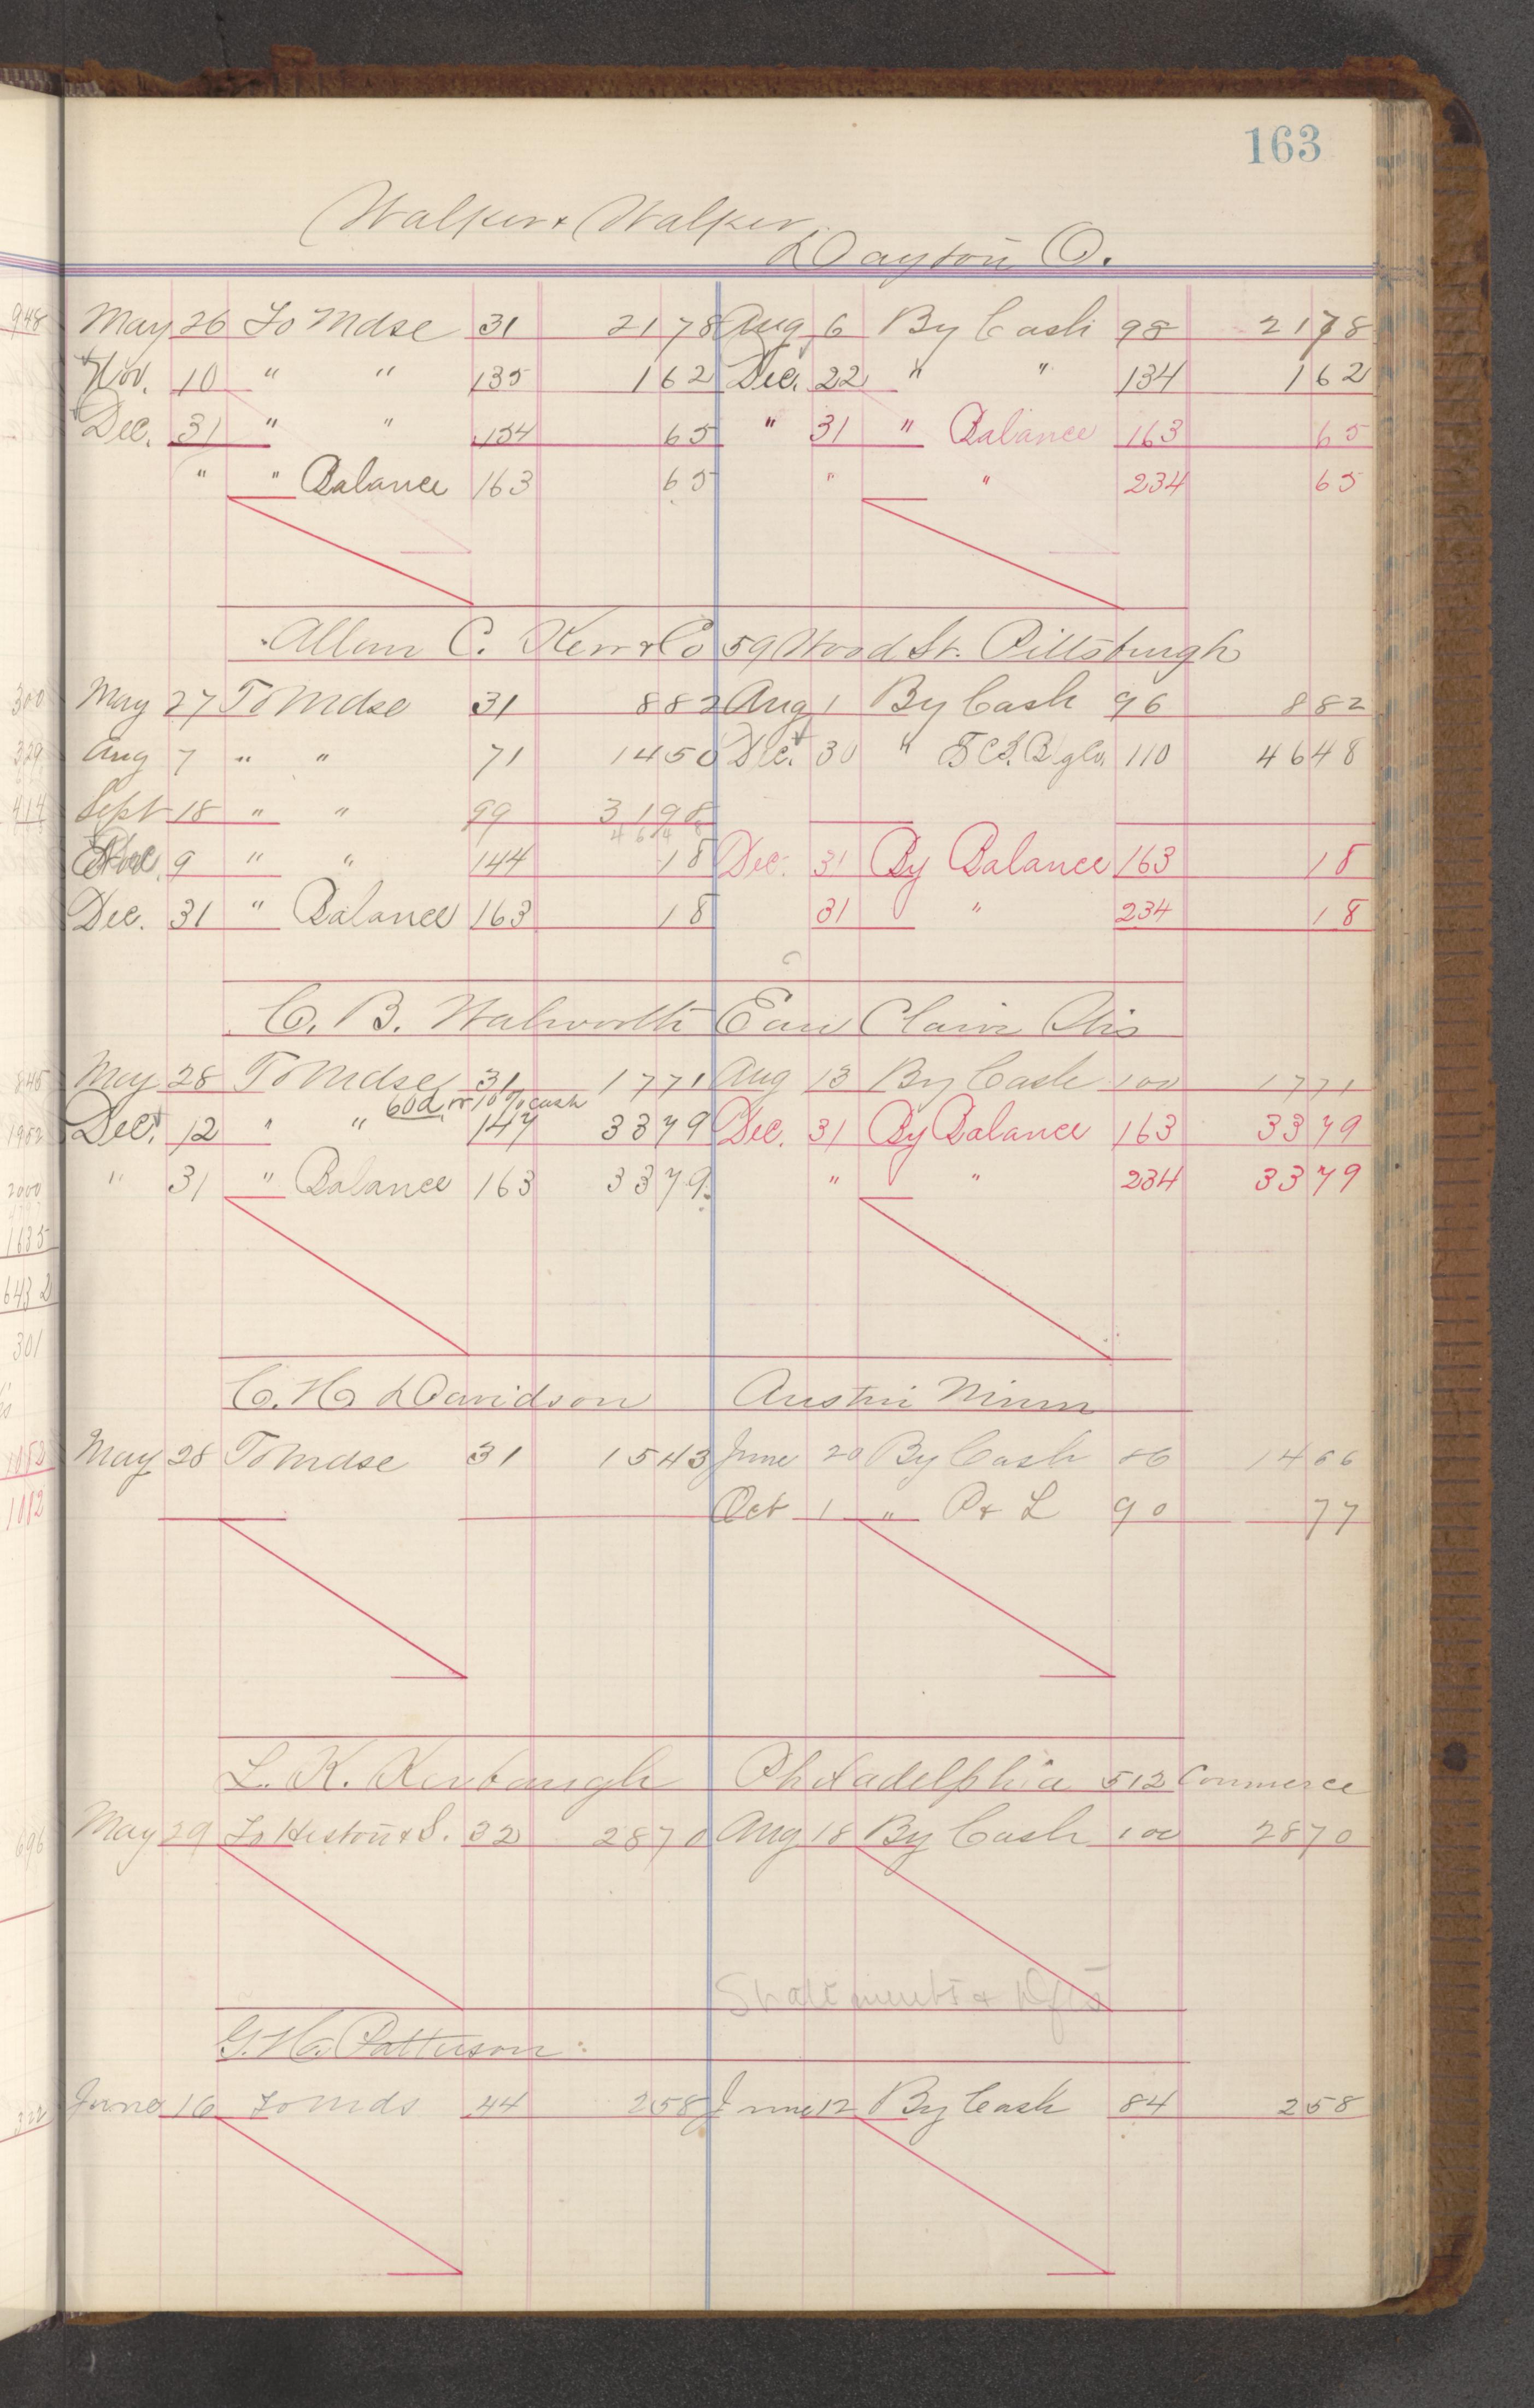 163
Walker & Walker,
Dayton O.
May 26 To Mdse 31 21 78 Aug 6 By Cash 98 21 78
Nov. 10 " " 135 1 62 Dec. 22 " " 134 1 62
Dec. 31 " " 154 65 " 31 " Balance 163 65
" " Balance 163 65 " " 234 65
Allan C. Kerr & Co 59 Wood St. Pittsburgh
May 27 To Mdse 31 8 82 Aug 1 By Cash 96 8 82
Aug 7 " " 71 14 50 Dec. 30 " 110 46 48
Sept 18 " " 99 31 98
46 48
9 " " 144 18 Dec. 31 By Balance 163 18
Dec. 31 " Balance 163 18 31 " 234 18
C. B. Walworth Eau Claire Wis
May 28 To Mdse 31 17 71 Aug 13 By Cash 100 17 71
60d or 10% cash
Dec. 12 " " 147 33 79 Dec. 31 By Balance 163 33 79
" 31 " Balance 163 33 79 " " 234 33 79
C. H. Davidson Austin Minn
May 28 To Mdse 31 15 43 June 20 By Cash 86 14 66
Oct 1 " P & L 90 77
L. K. Kerbaugh Philadelphia 512 Commerce
May 29 To Heston & S. 32 28 70 Aug 18 By Cash 100 28 70
Statements & Dfts
G. H. Patterson
June 16 To Mds 44 2 58 June 12 By Cash 84 2 58